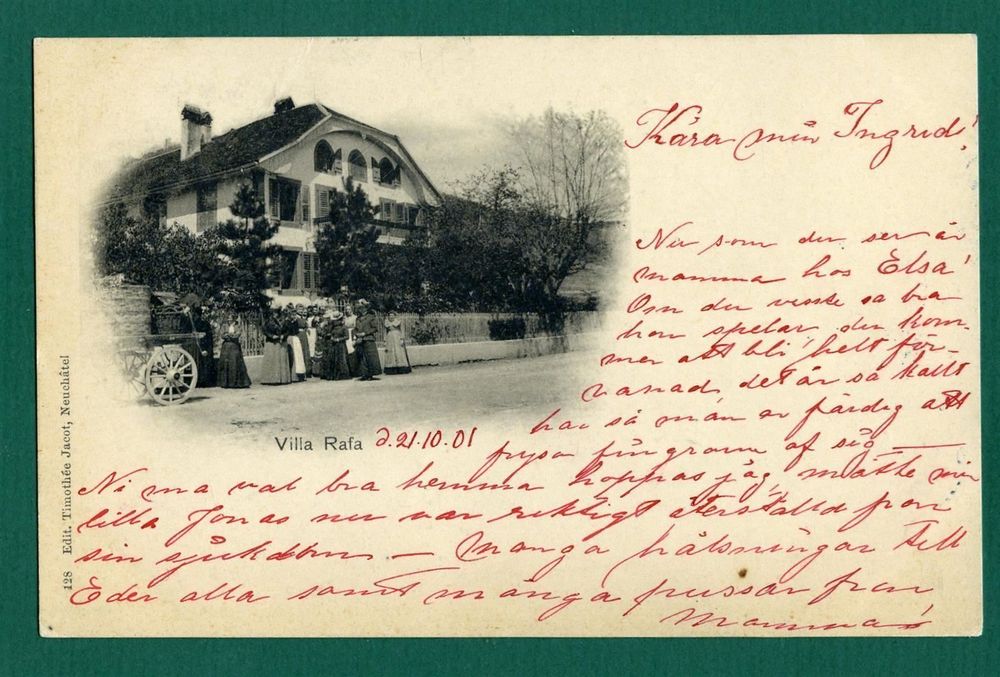 Kära min Ingrid!
Nu som du ser är
mamma hos Elsa!
Om du visste så bra
hon spelar, du kom-
mer att bli helt för-
vånad, det är så kallt
här så man är färdig att
frysa fingrarna af sig —
Villa Rafa d. 21.10.01
Ni må väl bra hemma hoppas jag, måtte min
lilla Jonas nu var riktigt återställd från
sin sjukdom — Många hälsningar till
Eder alla samt många pussar från
Mamma
128 Edit. Timothée Jacot, Neuchâtel